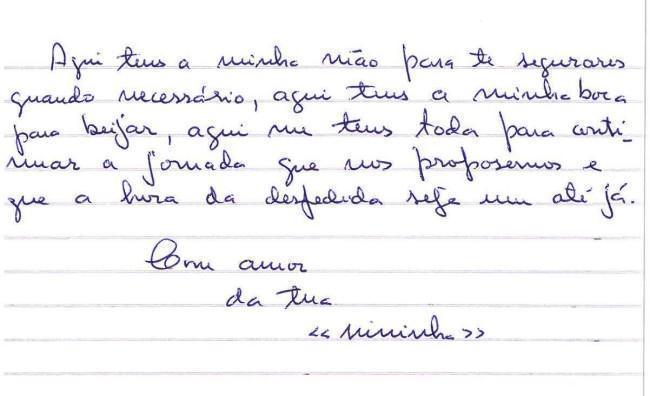 Aqui tens a minha mão para te segurares
quando necessário, aqui tens a minha boca
para beijar, aqui me tens toda para conti-
nuar a jornada que nos proposemos e
que a hora da despedida seja um até já.
Com amor
da tua
<<Nininha>>